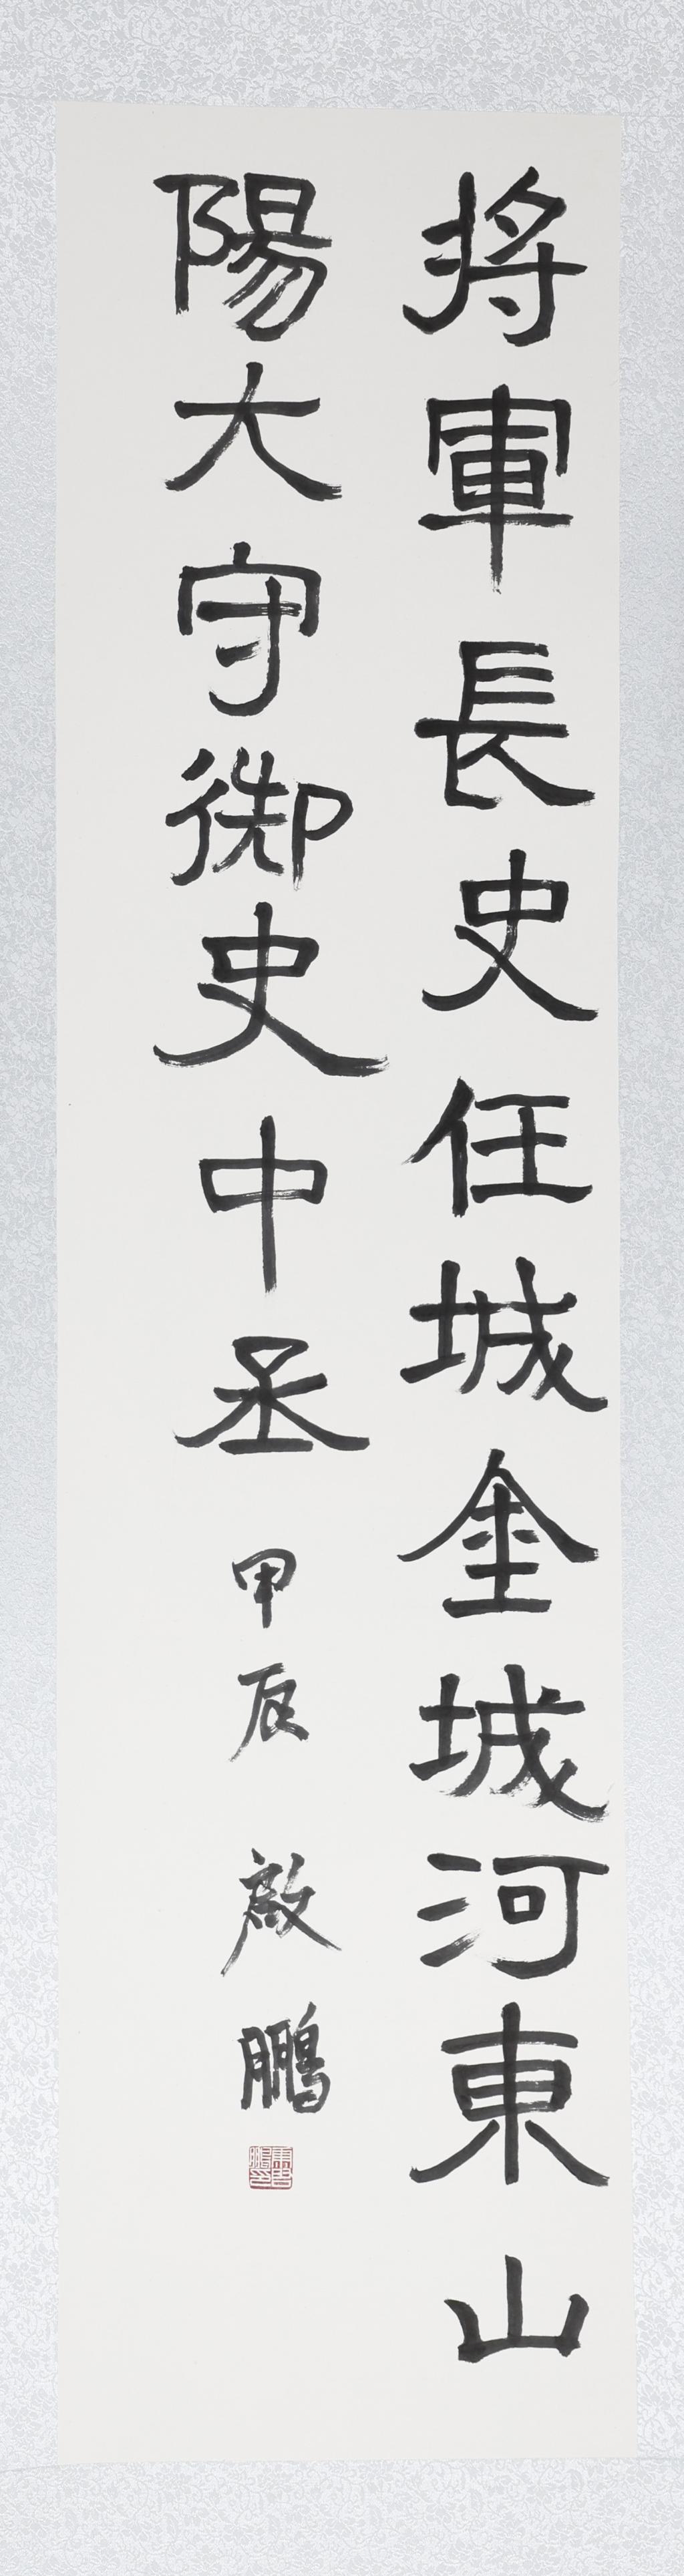 將軍長史任城金城河東山
陽大守御史中丞
甲辰 啟鵬